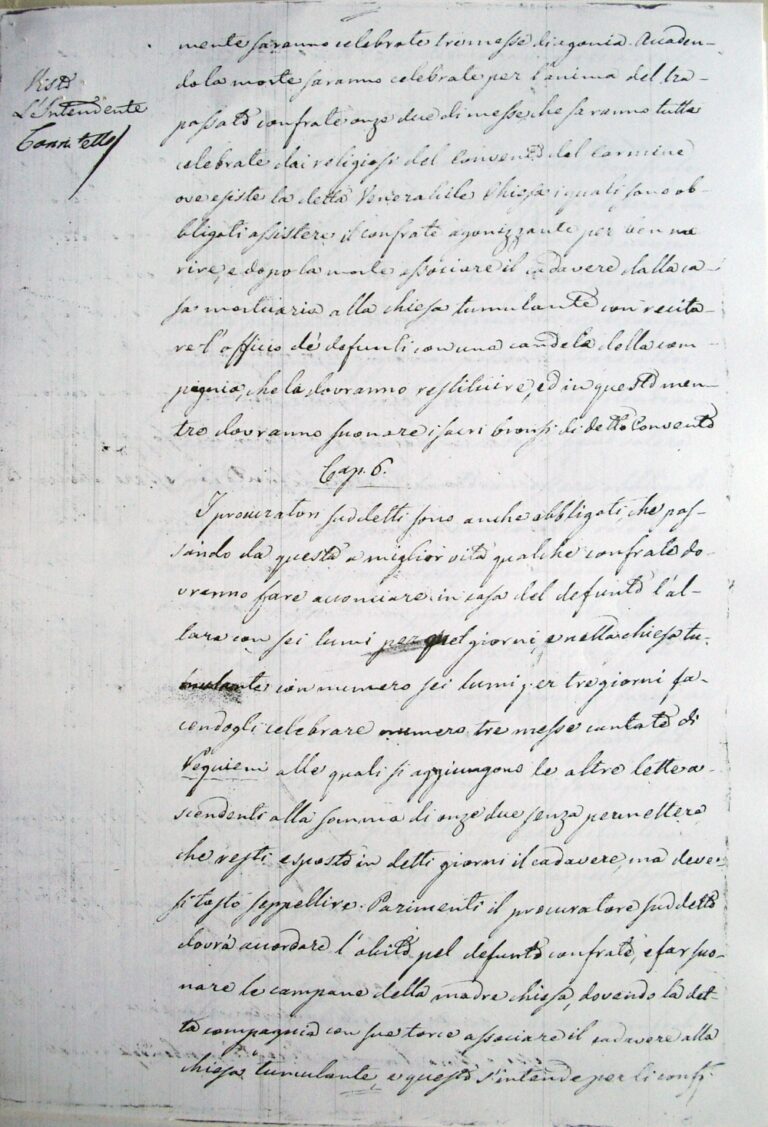 Visto
L'Intendente
mente saranno celebrate tre messe di agonia. Accaden-
do la morte saranno celebrate per l'anima del tra-
passato confrate onze due di messe che saranno tutte
celebrate dai religiosi del Convento del Carmine
ove esiste la detta Venerabile Chiesa, i quali sono ob-
bligati assistere il confrate agonizzante per ben mo
rire, e dopo la morte associare il cadavere dalla ca-
sa mortuaria alla chiesa tumulante con recita-
re l'officio de' defunti con una candela della com-
pagnia, che la dovranno restituire, ed in questo men-
tre dovranno suonare i sacri bronsi di detto Convento
Cap. 6.
I procuratori suddetti sono anche obbligati, che pas-
sando da questa a miglior vita qualche confrate do-
vranno fare acconciare in casa del defunto l'al-
tare con sei lumi per quel giorni, e nella chiesa tu-
mulante con numero sei lumi per tre giorni fa-
cendogli celebrare numero tre messe cantate di
Requiem alle quali si aggiungono le altre lette a-
scendenti alla somma di onze due senza permettere
che resti esposto in detti giorni il cadavere, ma deve-
si tosto seppellire. Parimenti il procuratore suddetto
dovrà accordare l'abito pel defunto confrate, e far suo-
nare le campane della madre chiesa, dovendo la det-
ta compagnia con sue torce associare il cadavere alla
chiesa tumulante, e questo s'intende per li confr.